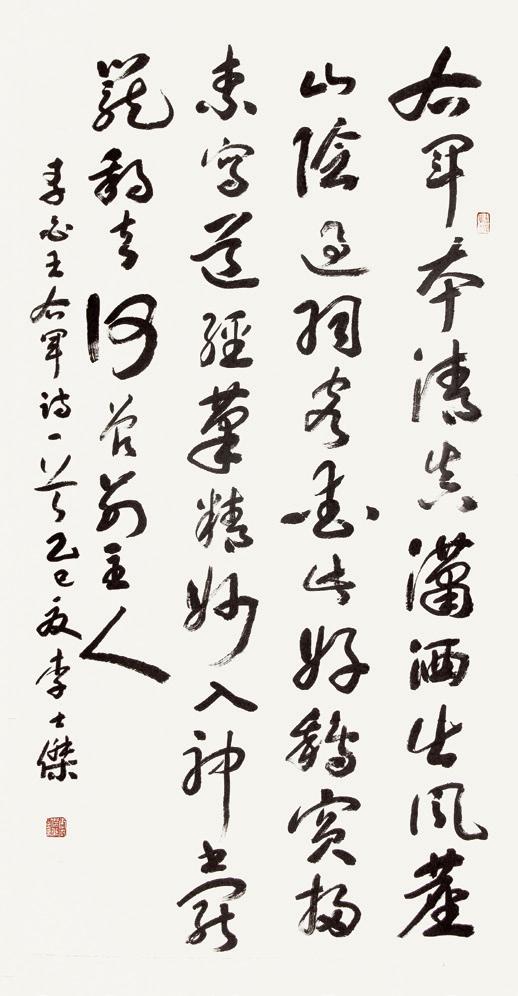 右軍本清真瀟洒出風塵
山陰過羽客愛此好鵝賓掃
素寫道經筆精妙入神書罷
籠鵝去何曾別主人
李白王右軍詩一首乙巳夏李士傑